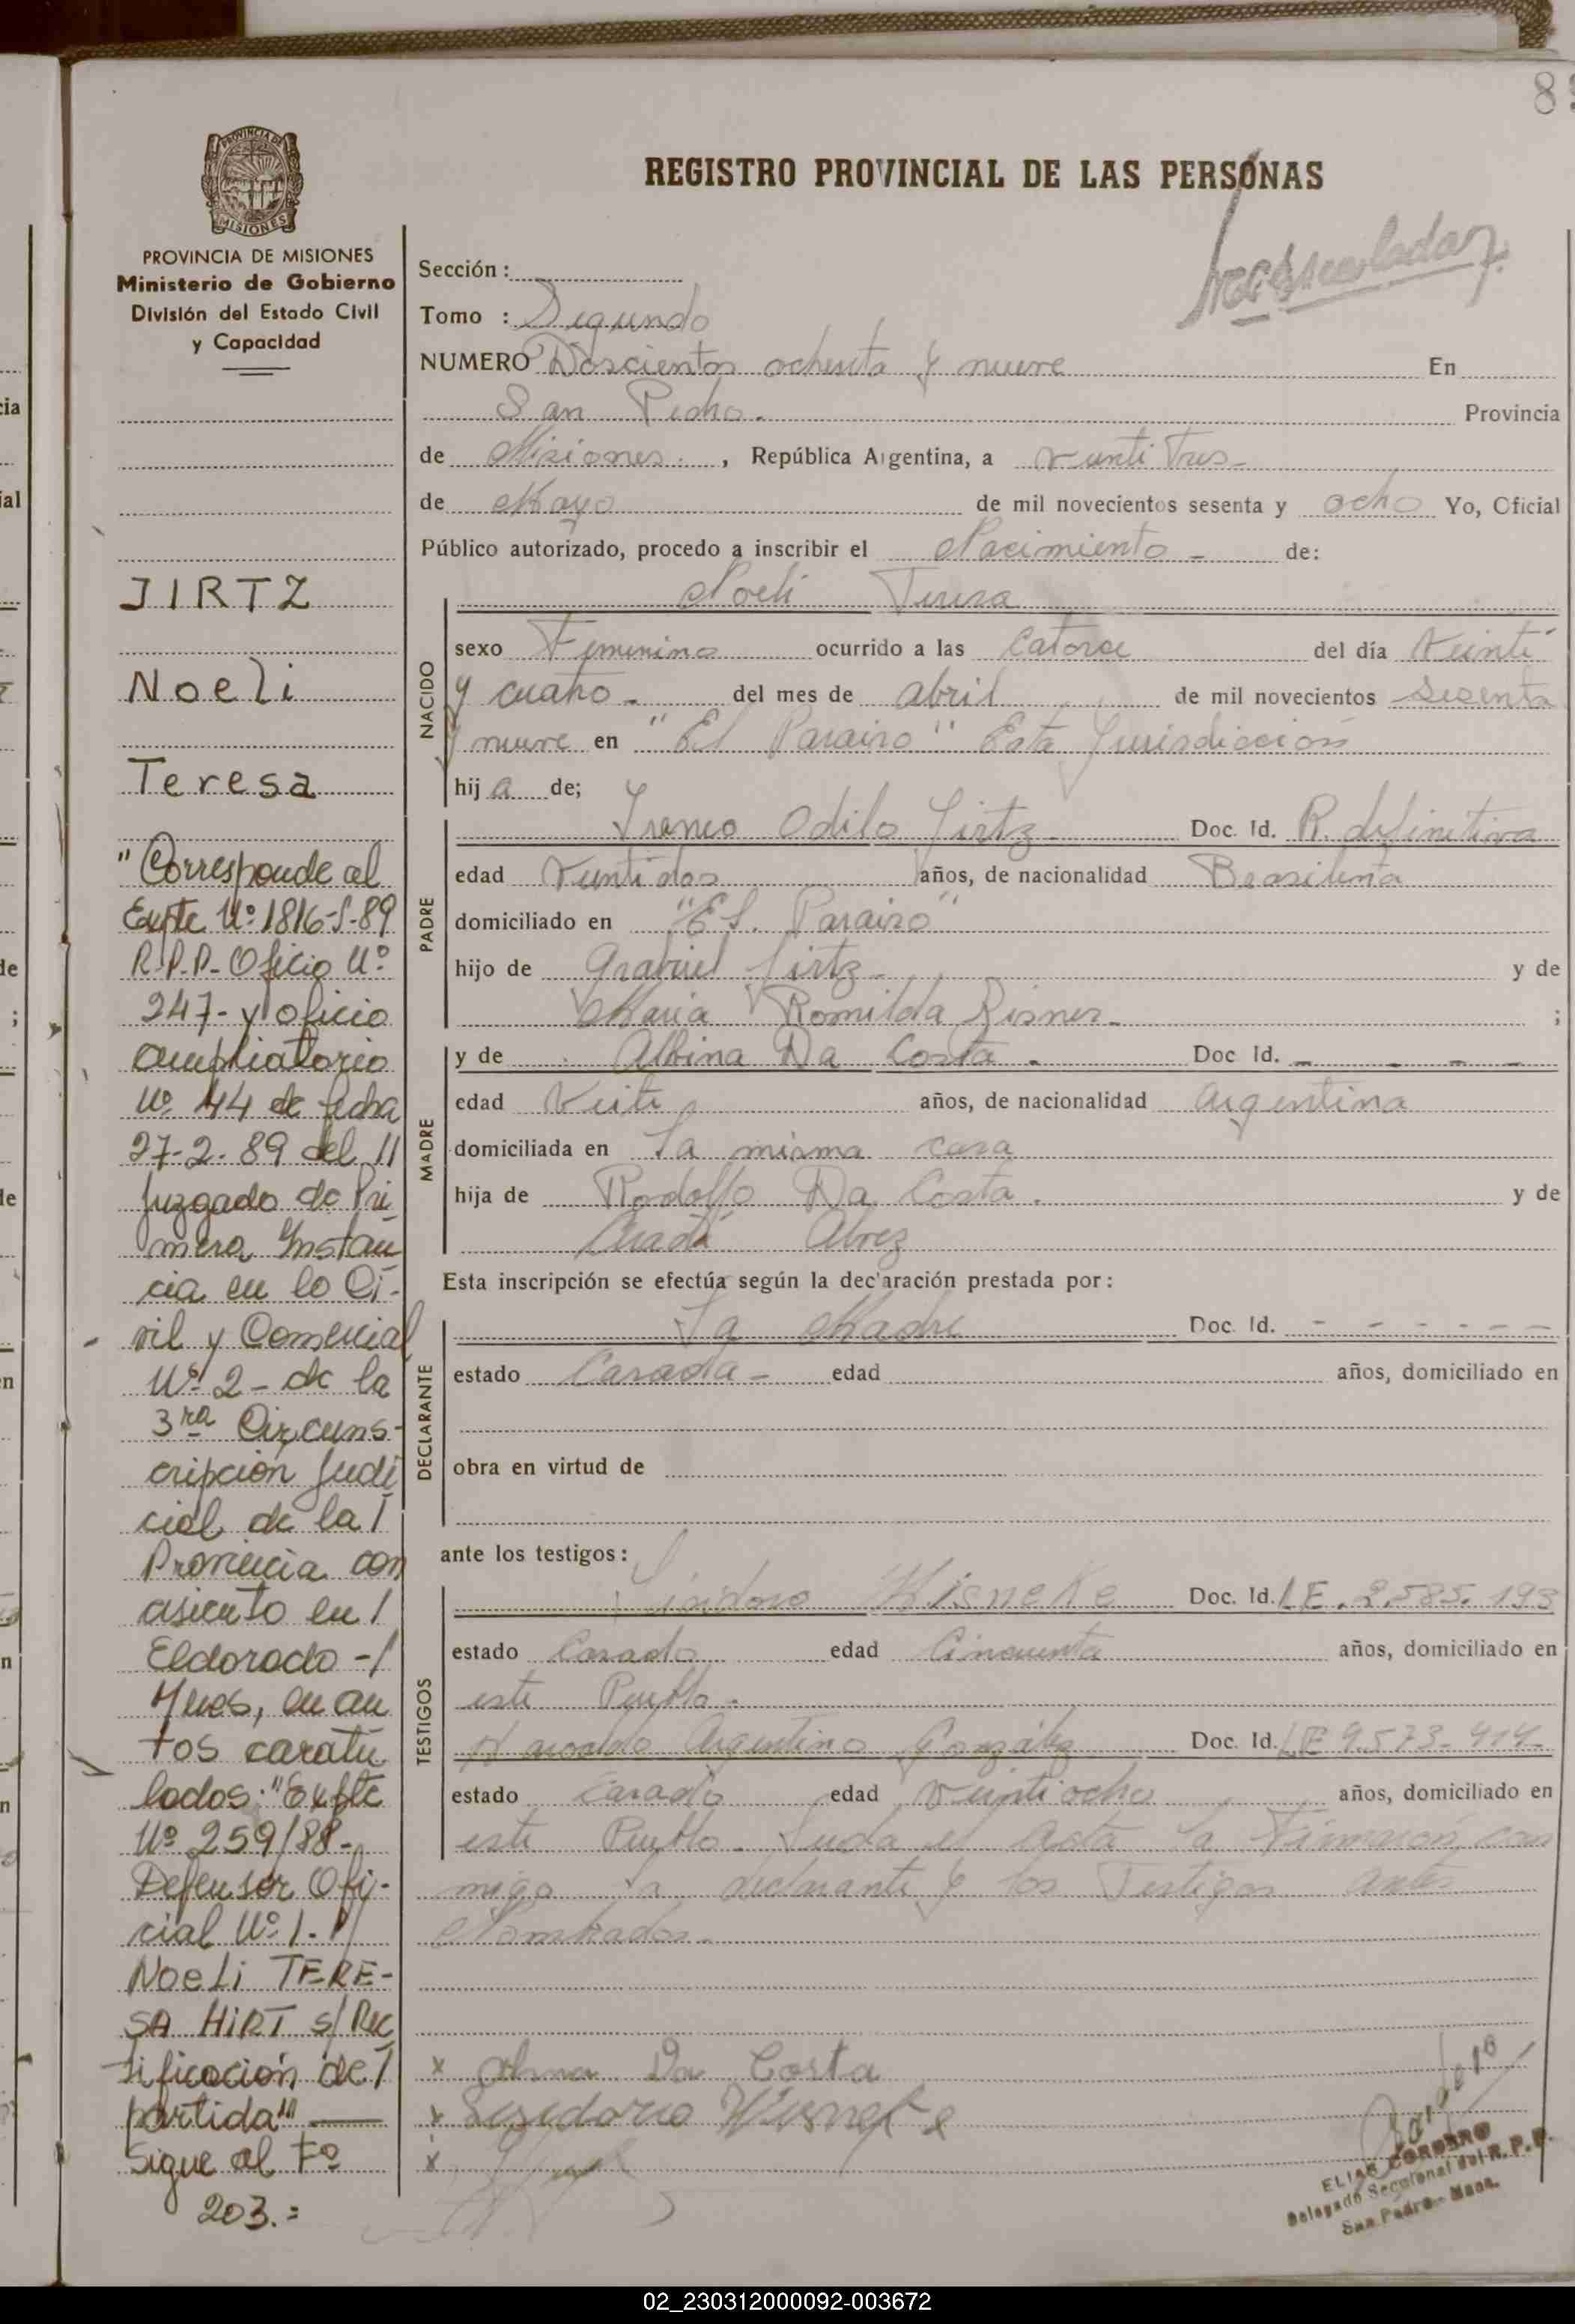 8
REGISTRO PROVINCIAL DE LAS PERSONAS
PROVINCIA DE
MISIONES
PROVINCIA DE MISIONES
Ministerio de Gobierno
División del Estado Civil
y Capacidad
JIRTZ
Noeli
Teresa
"Corresponde al
Expte Nº 1816-S-89
R.P.P.- Oficio Nº
247- y oficio
ampliatorio
Nº 44 de fecha
27-2-89 del //
Juzgado de Pri
mera Instan
cia en lo Ci-
vil y Comercial
Nº 2- de la
3ra Circuns-
cripción Judi
cial de la /
Provincia con
asiento en /
Eldorado -/
Mnes, en au
tos caratu
lados: "Expte
Nº 259/88-
Defensor Ofi-
cial Nº 1. //
NOELi TERE-
SA HIRT s/ Rec
tificación de /
partida"
Sigue al Fº
203.=
Sección :
Tomo : Segundo
NUMERO Doscientos ochenta y nueve En
San Pedro. Provincia
de Misiones. , República Argentina, a veinti Tres-
de Mayo de mil novecientos sesenta y ocho Yo, Oficial
Público autorizado, procedo a inscribir el Nacimiento - de:
Noeli Teresa
NACIDO
sexo Femenino ocurrido a las Catorce del día Veinti
y cuatro - del mes de abril de mil novecientos sesenta
y nueve en "El Paraiso" Esta Jurisdicción
hij a de;
PADRE
Ireneo Odilo Jirtz Doc. Id. R. definitiva
edad Veintidos años, de nacionalidad Brasileña
domiciliado en "El Paraiso"
hijo de Grabiel Jirtz - y de
Maria Romilda Risner - ;
MADRE
y de Albina Da Costa - Doc Id. - - - -
edad Veite años, de nacionalidad argentina
domiciliada en La misma casa
hija de Rodolfo Da Costa . y de
Abrez
Esta inscripción se efectúa según la declaración prestada por:
DECLARANTE
La Madre Doc. Id. - - - - - -
estado Casada - edad años, domiciliado en
obra en virtud de
ante los testigos:
TESTIGOS
Isidoro Wisneke Doc. Id. L E. 2.585.193
estado Casado edad Cincuenta años, domiciliado en
este Pueblo.
Argentino González Doc. Id. LE 9.573.414-
estado casado edad veintiocho años, domiciliado en
este Pueblo. Leida el Acta la Firmaron con
migo la declarante y los Testigos antes
Nombrados.
x Da Costa
x Wisneke
x
ELIAS CORDERO
Delegado Seccional del R. P. P.
San Pedro - Mnes.
02_230312000092-003672